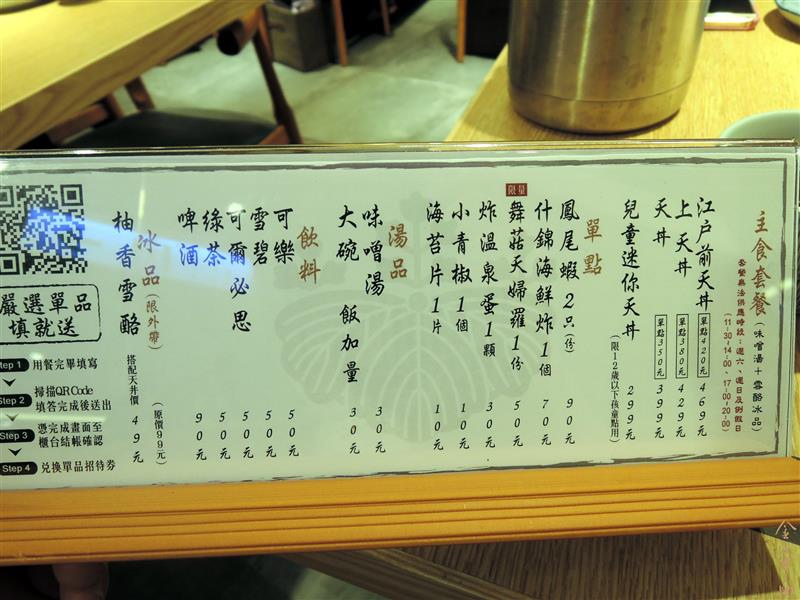 主食套餐(味噌湯+雪酪冰品)
套餐無法供應時段:週六、週日及例假日
(11:30-14:00、17:00-20:00)
江戶前天丼 單點420元 469元
上天丼 單點380元 429元
天丼 單點350元 399元
兒童迷你天丼 299元
(限12歲以下孩童點用)
單點
鳳尾蝦2只(份) 90元
什錦海鮮炸1個 70元
限量
舞菇天婦羅1份 50元
炸溫泉蛋1顆 30元
小青椒1個 10元
海苔片1片 10元
湯品
味噌湯 30元
大碗 飯加量 30元
飲料
可樂 50元
雪碧 50元
可爾必思 50元
綠茶 50元
啤酒 90元
冰品(限外帶)
(原價99元)
柚香雪酪 搭配天丼價 49元
嚴選單品
填就送
Step 1 用餐完畢填寫
Step 2 掃描QR Code
填答完成後送出
Step 3 憑完成畫面至
櫃台結帳確認
Step 4 兌換單品招待券